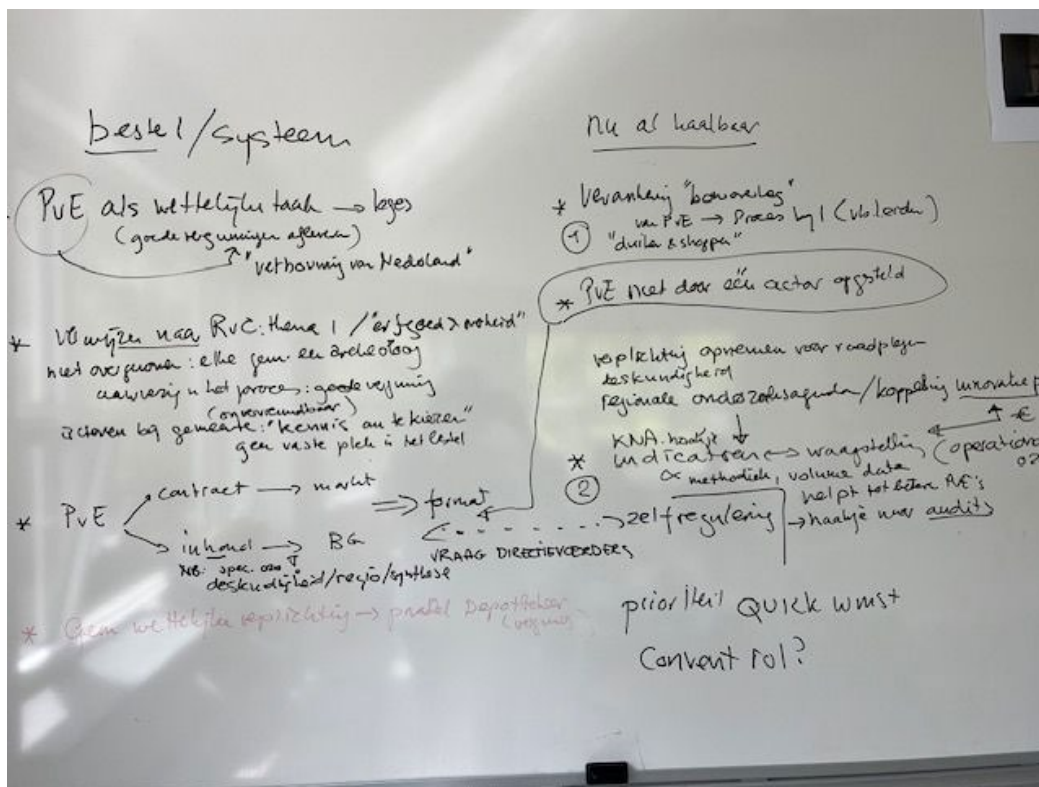 bestel/systeem
PvE als wettelijke taak → leges
(goede vergunningen afleveren)
"verbouwing van Nederland"
* Verwijzen naar RvC: thema 1 / "erfgoedx
niet overgenomen: elke gem. een archeoloog
aanwezig in het proces: goede vergunning
actoren bij gemeente: "kennis aan te kiezen"
geen vaste plek in het bestel
* PvE
contract → markt
inhoud → BG
NB: spec.
deskundigheid/regio/synthese
⇒ format
VRAAG DIRECTIEVOERDERS
* Geen wettelijke verplichting →
nu al haalbaar
* Verankering
van PvE → Proces bij 1 (
① "
* PvE niet door één actor opgesteld
verplichting opnemen voor raadplegen
deskundigheid
regionale onderzoeksagenda/koppeling innovatie
€
KNA.
* indicatoren ↔ vraagstelling (
② methodiek, volume data
helpt tot betere PvE's
zelfregulering → haakje naar audits
prioriteit QUICK winst
Convent rol?